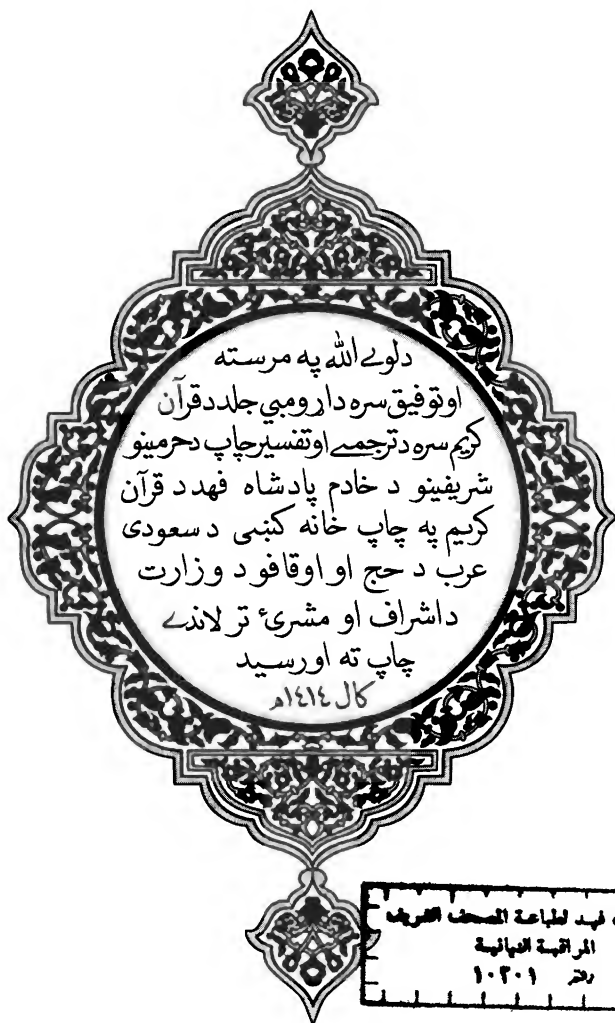 دلوے الله په مرسته
اوتوفیق سره دا, رومبي جلد د قرآن
کریم سره د ترجمے او تفسیر چاپ د حرمینو
شریفینو د خادم پادشاه فهد د قرآن
کریم په چاپ خانه کښی د سعودی
عرب د حج او اوقافو د وزارت
د اشراف او مشرئ تر لاندے
چاپ ته اورسید
کال ١٤١٤ھ
فهد لطباعة المصحف الشريف
المراقبة النهائية
١٠٢٠١